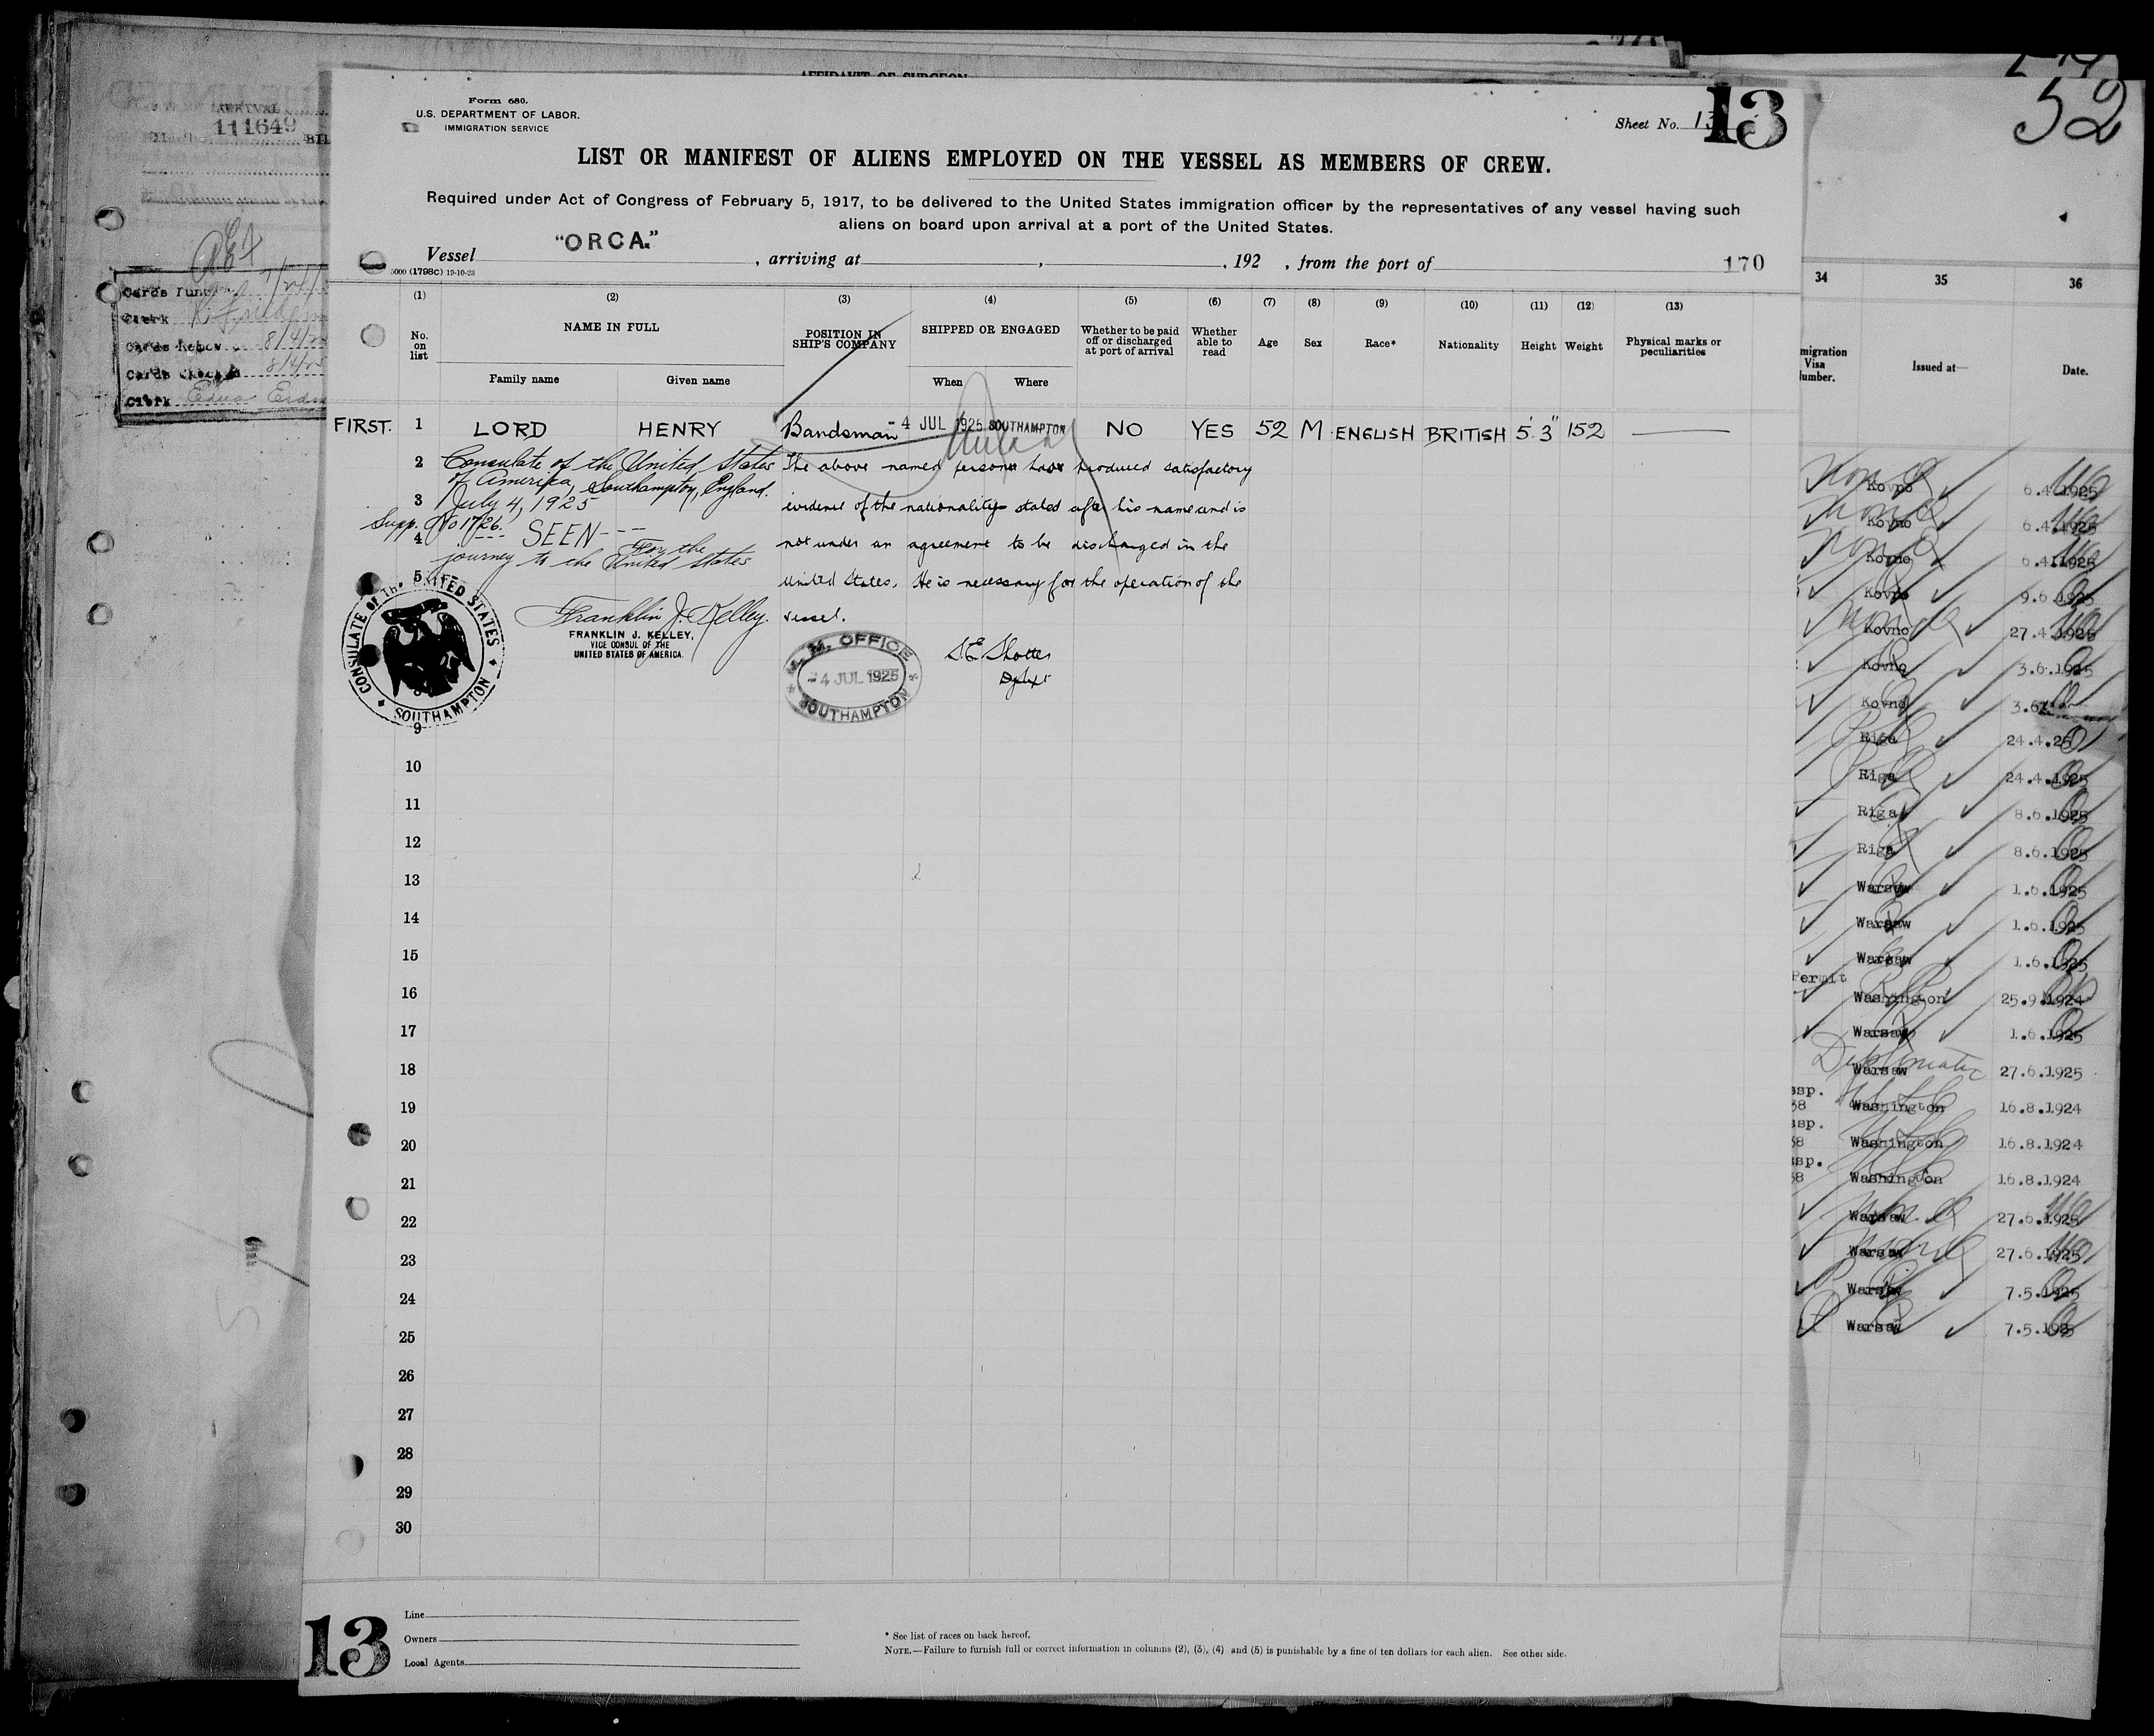 AFFIDAVIT OF SURGEON
ARRIVAL
111649
Cards Punc
Clerk
8/4/25
8/4/25
Clerk Edna
52
Form 680.
U.S. DEPARTMENT OF LABOR.
IMMIGRATION SERVICE
Sheet No. 13
13
LIST OR MANIFEST OF ALIENS EMPLOYED ON THE VESSEL AS MEMBERS OF CREW.
Required under Act of Congress of February 5, 1917, to be delivered to the United States immigration officer by the representatives of any vessel having such
aliens on board upon arrival at a port of the United States.
Vessel "ORCA." , arriving at , , 192 , from the port of 170
5000 (1798C) 19-10-23
(1) (2) (3) (4) (5) (6) (7) (8) (9) (10) (11) (12) (13)
No. on list
NAME IN FULL
Family name Given name
POSITION IN SHIP'S COMPANY
SHIPPED OR ENGAGED
When Where
Whether to be paid off or discharged at port of arrival
Whether able to read
Age Sex Race* Nationality Height Weight
Physical marks or peculiarities
FIRST. 1 LORD HENRY Bandsman - 4 JUL 1925 SOUTHAMPTON NO YES 52 M ENGLISH BRITISH 5' 3" 152 ———
2 Consulate of the United States
of America, Southampton, England.
3 July 4, 1925
Supp. No 1726.
4 SEEN - - -
For the
journey to the United States
5
The above named person has produced satisfactory
evidence of the nationality stated after his name and is
not under an agreement to be discharged in the
United States. He is necessary for the operation of the
vessel.
CONSULATE OF THE UNITED STATES
SOUTHAMPTON
Franklin J. Kelley.
FRANKLIN J. KELLEY,
VICE CONSUL OF THE
UNITED STATES OF AMERICA.
M. M. OFFICE
- 4 JUL 1925
SOUTHAMPTON
9
10
11
12
13
14
15
16
17
18
19
20
21
22
23
24
25
26
27
28
29
30
13
Line
Owners
Local Agents
* See list of races on back hereof.
NOTE.—Failure to furnish full or correct information in columns (2), (3), (4) and (5) is punishable by a fine of ten dollars for each alien. See other side.
34 35 36
migration Visa umber.
Issued at—
Date.
Kovno 6.4.1925
Kovno 6.4.1925
Kovno 6.4.1925
Kovno 9.6.1925
Kovno 27.4.1925
Kovno 3.6.1925
Kovno 3.6
Riga 24.4.25
Riga 24.4.1925
Riga 8.6.1925
Riga 8.6.1925
Warsaw 1.6.1925
Warsaw 1.6.1925
Warsaw 1.6.1925
Permit
Washington 25.9.1924
Warsaw 1.6.1925
Diplomatic
Warsaw 27.6.1925
ssp.
38 Washington 16.8.1924
ssp.
38 Washington 16.8.1924
ssp.
38 Washington 16.8.1924
Warsaw 27.6.1925
Warsaw 27.6.1925
Warsaw 7.5.1925
Warsaw 7.5.1925